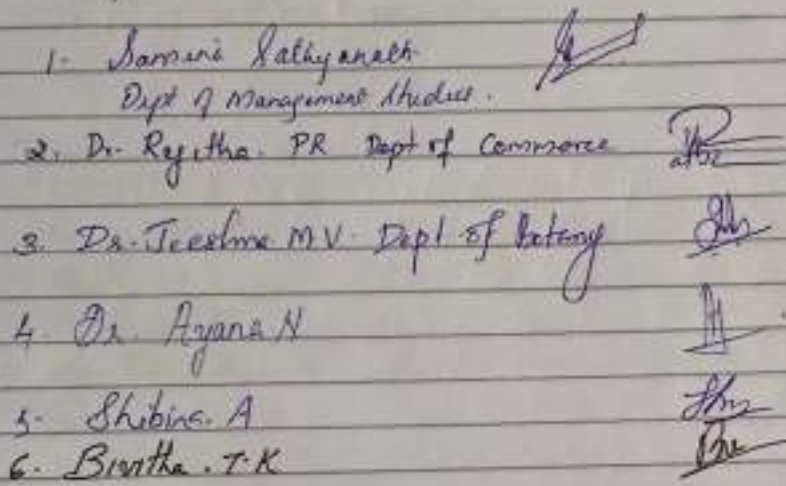 1. Samina Sathyanath
Dept of Management Studies.
2. Dr. Rejitha. PR Dept of Commerce
3. Dr. Jeeshma M V. Dept of Botany
4. Dr. Ayana N
5. Shibina. A
6. Bivitha. T. K